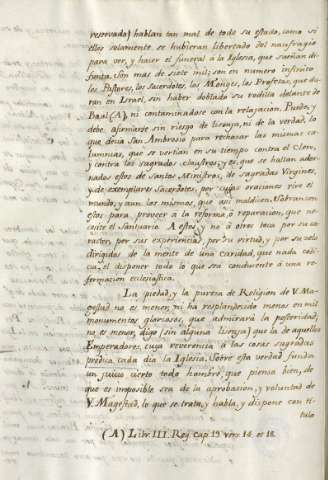 reservado) hablan tan mal de todo su estado, como si
ellos solamente se hubieran libertado del naufragio
para ver, y hacer el funeral à la Iglesia, que sueñan di-
funta. Son mas de siete mil; son en numero infinito
los Pastores, los Sacerdotes, los Monges, los Profetas, que du-
ran en Israel, sin haber doblado su rodilla delante de
Baal (A), ni contaminadose con la relaxacion. Puede, y
debe afirmarse sin riesgo de lisonja, ni de la verdad, lo
que decia San Ambrosio para rechazar las mismas ca-
lumnias, que se vertian en su tiempo contra el Clero,
y contra los sagrados claustros; y es, que se hallan ador-
nados estos de Santos Ministros, de sagradas Virgines,
y de exemplares Sacerdotes, por cuyas oraciones vive el
mundo, y aun los mismos, que asi maldicen. Sobran en
estos para proveer a la reforma, ò reparacion, que ne-
cesite el Santuario. A estos, y no à otros toca por su ca-
racter, por sus experiencias, por su virtud, y por su zelo
dirigidos de la mente de una caridad, que nada codi-
cia, el disponer todo lo que sea conducente à una re-
formacion eclesiastica.
La piedad, y la pureza de Religion de V. Ma-
gestad no es menor, ni ha resplandecido menos en mil
monumentos gloriosos, que admirará la posteridad,
no es menor, digo (sin alguna lisonja) que la de aquellos
Emperadores, cuya reverencia à las cosas sagradas
predica cada dia la Iglesia. Sobre esta verdad funda
un juicio cierto todo hombre, que piensa bien, de
que es imposible sea de la aprobacion, y voluntad de
V. Magestad, lo que se trata, y habla, y dispone con ti-
tulo
(A) Libr. III. Reg. Cap. 19. vers. 14. et 18.